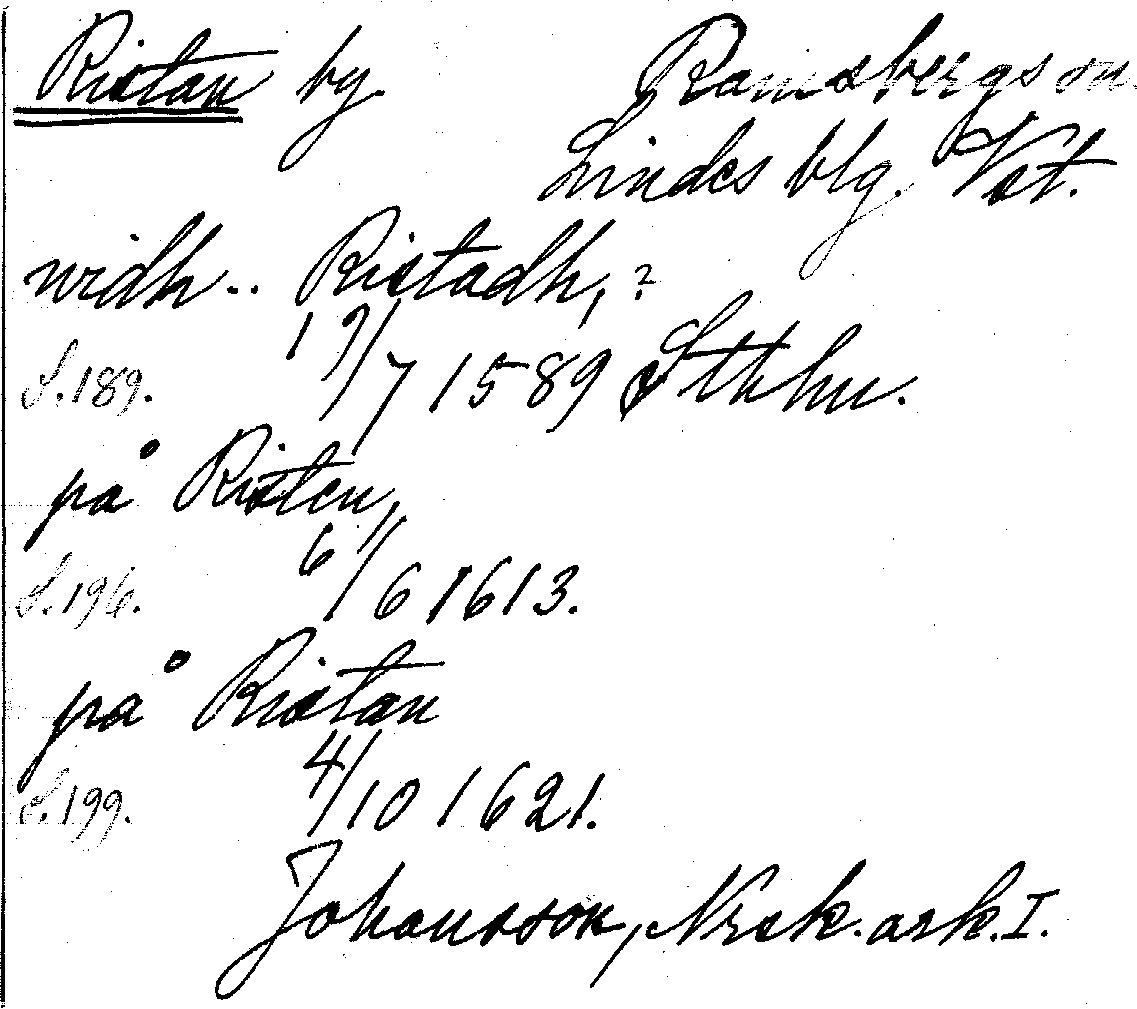 Ristan by. Ramsbergs sn.
Lindes blg. Vst.
widh.. Ristadh, ?
S. 189. 19/7 1589 Sthlm.
på Risten,
S. 196. 6/6 1613.
på Ristan
S. 199. 4/10 1621.
Johansson, Nrsk. ark. I.